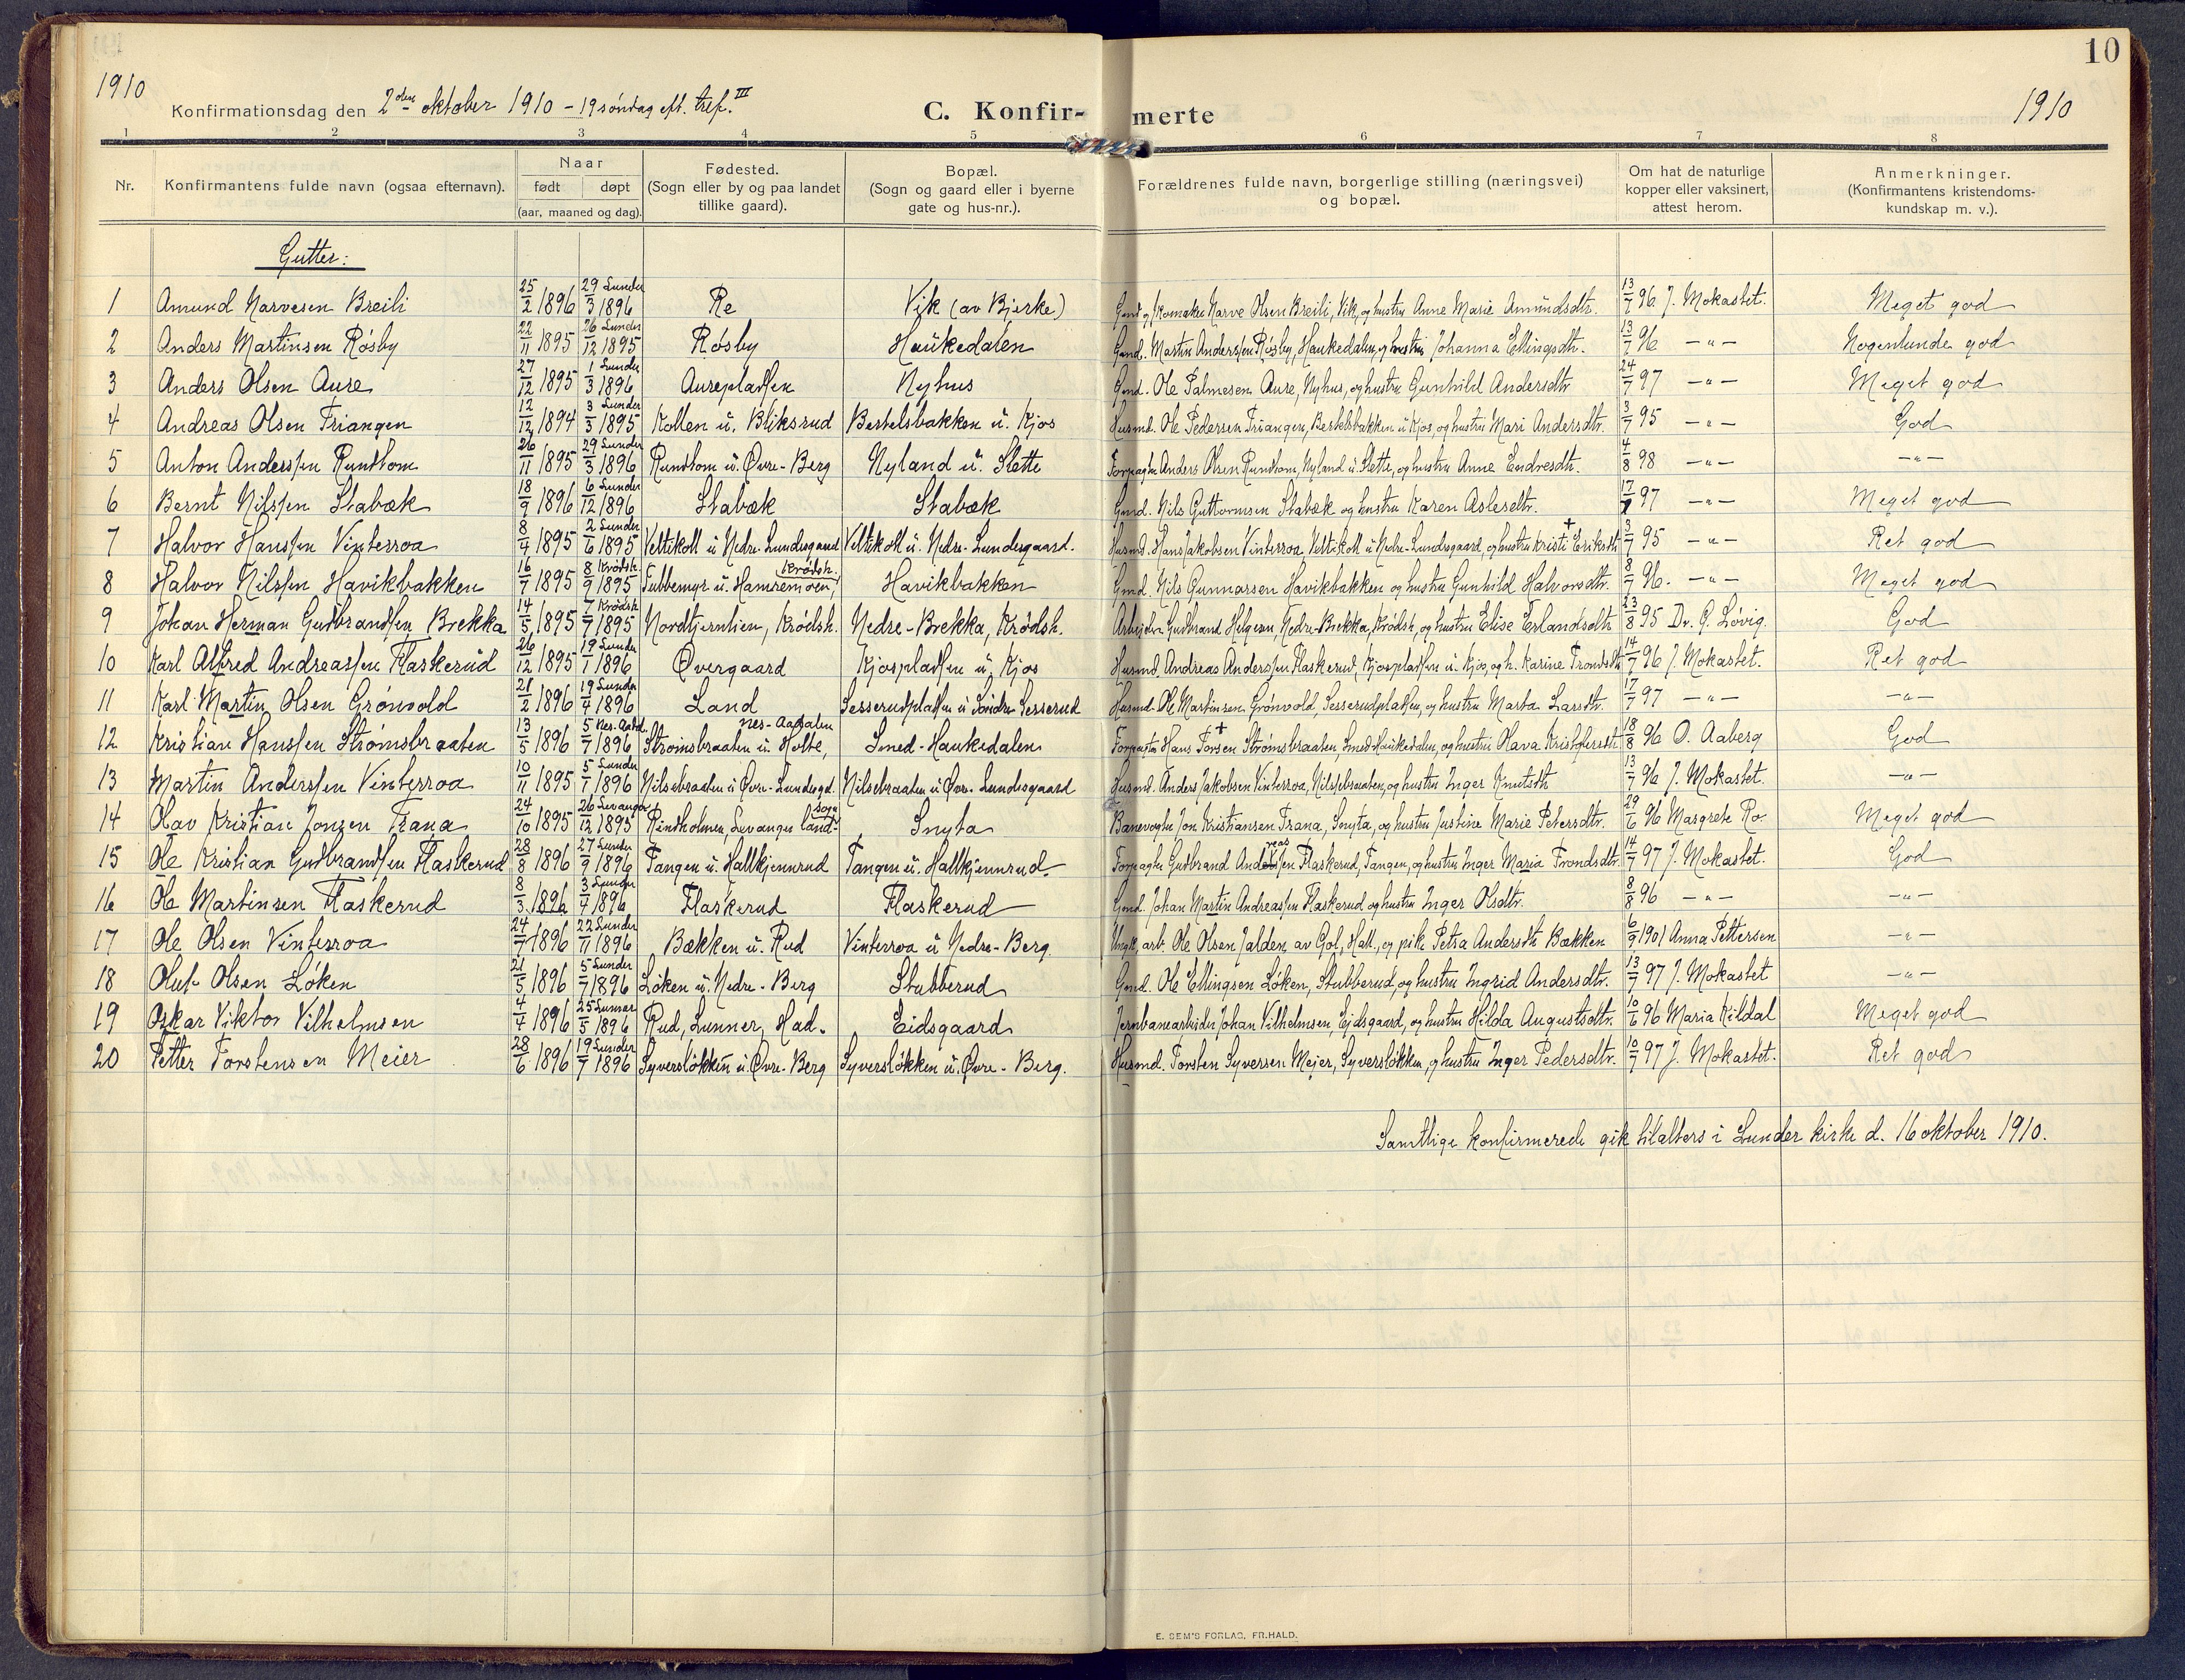 10
1910
Konfirmationsdag den 2den oktober 1910 - 19 søndag eft. tref. III
C. Konfir-merte
1910
1 2 3 4 5 6 7 8
Nr. Konfirmantens fulde navn (ogsaa efternavn). Naar født døpt (aar, maaned og dag). Fødested. (Sogn eller by og paa landet tillike gaard). Bopæl. (Sogn og gaard eller i byerne gate og hus-nr.). Forældrenes fulde navn, borgerlige stilling (næringsvei) og bopæl. Om hat de naturlige kopper eller vaksinert, attest herom. Anmerkninger. (Konfirmantens kristendoms-kundskap m. v.).
Gutter:
1 Amund Narvesen Breili 25/2 1896 29/3 1896 Lunder Re Vik (av Bjerke) Gmd. og skomaker Narve Olsen Breili, Vik, og hustru Anne Marie Amundsdtr. 13/7 96 J. Mokastet. Meget god
2 Anders Martinsen Røsby 22/11 1895 26/12 1895 Lunder Røsby Haukedalen Gmd. Martin Anderssen Røsby, Haukedalen, og hustru Johanna Ellingsdtr. 13/7 96 -"- Nogenlunde god
3 Anders Olsen Aure 27/12 1895 1/3 1896 Lunder Aureplassen Nyhus Gmd. Ole Palmesen Aure, Nyhus, og hustru Gunhild Andersdtr 24/7 97 -"- Meget god
4 Andreas Olsen Triangen 12/12 1894 3/3 1895 Lunder Kollen u. Bliksrud Bertelsbakken u. Kjos Husmd. Ole Pedersen Triangen, Bertelsbakken u. Kjos, og hustru Mari Andersdtr. 3/7 95 -"- God
5 Anton Anderssen Rundtom 26/11 1895 29/3 1896 Lunder Rundtom u. Øvre-Berg Nyland u. Slette Forpagter Anders Olsen Rundtom, Nyland u. Slette, og hustru Anne Endresdtr. 4/8 98 -"- -"-
6 Bernt Nilssen Stabæk 18/9 1896 6/12 1896 Lunder Stabæk Stabæk Gmd. Nils Guttormsen Stabæk og hustru Karen Aslesdtr. 17/7 97 -"- Meget god
7 Halvor Hanssen Vinterroa 8/4 1895 2/6 1895 Lunder Veltikoll u Nedre-Lundesgaard Veltikoll u. Nedre-Lundesgaard. Husmd. Hans Jakobsen Vinterroa, Veltikoll u Nedre-Lundesgaard, og hustru Kristi + Eriksdtr 3/7 95 -"- Ret god
8 Halvor Nilssen Havikbakken 16/7 1895 8/9 1895 Krødsh. Tubbemyr u. Hamremoen, Krødsh. Havikbakken Gmd. Nils Gunnarsen Havikbakken og hustru Gunhild Halvorsdtr. 8/7 96. -"- Meget god
9 Johan Herman Gudbrandsen Brekka 14/5 1895 7/7 1895 Krødsh. Nordtjernlien, Krødsh. Nedre-Brekka, Krødsh. Arbeider Gudbrand Helgesen, Nedre-Brekka, Krødsh, og hustru Elise Erlandsdtr 23/8 95 Dr. G. Løvig. God
10 Karl Alfred Andreassen Flaskerud 26/12 1895 19/1 1896 Lunder Øvergaard Kjosplassen u. Kjos Husmd. Andreas Anderssen Flaskerud, Kjosplassen u. Kjos, og h. Karine Trondsdtr 14/7 96 J. Mokastet. Ret god
11 Karl Martin Olsen Grønvold 21/2 1896 19/4 1896 Lunder Land Sesserudplassen u Søndre Sesserud Husmd. Ole Martinsen Grønvold, Sesserudplassen, og hustru Marta Larsdtr. 17/7 97 -"- -"-
12 Kristian Hanssen Strømsbraaten 13/5 1896 5/7 1896 Nes-Aadal. Strømsbraaten u. Holte, Nes-Aadalen Smed-Haukedalen Forpagter Hans + Torsen Strømsbraaten, Smed-Haukedalen, og hustru Olava Kristofersdtr 18/8 96 O. Aaberg God
13 Martin Anderssen Vinterroa 10/11 1895 5/1 1896 Lunder Nilsebraaten u Øvre-Lundesgd. Nilsebraaten u Øvre-Lundesgaard Husmd. Anders Jakobsen Vinterroa, Nilsebraaten, og hustru Inger Knutsdtr 13/7 96 J. Mokastet. -"-
14 Olav Kristian Jonsen Trana 24/10 1895 26/12 1895 Levanger Rindholmen, Levanger land-sogn Snyta Banevogter Jon Kristiansen Trana, Snyta, og hustru Justine Marie Petersdtr. 29/6 96 Margrete Ro. Meget god
15 Ole Kristian Gudbrandsen Flaskerud 28/8 1896 27/9 1896 Lunder Tangen u. Hallkjennrud Tangen u. Hallkjennrud Forpagter Gudbrand Andreassen Flaskerud, Tangen, og hustru Inger Maria Trondsdtr. 14/7 97 J. Mokastet. God
16 Ole Martinsen Flaskerud 8/3 1896 3/4 1896 Lunder Flaskerud Flaskerud Gmd. Johan Martin Andreassen Flaskerud og hustru Inger Olsdtr. 8/8 96 -"- -"-
17 Ole Olsen Vinterroa 24/7 1896 22/11 1896 Lunder Bækken u. Rud Vinterroa u Nedre-Berg. Ungk., arb. Ole Olsen Jalden av Gol, Hall., og pike Petra Andersdtr Bækken 6/9 1901 Anna Pettersen -"-
18 Oluf Olsen Løken 21/5 1896 5/7 1896 Lunder Løken u. Nedre-Berg Stubberud Gmd. Ole Ellingsen Løken, Stubberud, og hustru Ingrid Andersdtr. 13/7 97 J. Mokastet -"-
19 Oskar Viktor Vilhelmsen 4/4 1896 25/5 1896 Lunner Rud, Lunner, Had. Eidsgaard Jernbanearbeider Johan Vilhelmsen, Eidsgaard, og hustru Hilda Augustsdtr. 10/6 96 Maria Kildal Meget god
20 Petter Torstensen Meier 28/6 1896 19/7 1896 Lunder Syversløkken u. Øvre-Berg Syversløkken u. Øvre-Berg. Husmd. Torsten Syversen Meier, Syversløkken, og hustru Inger Pedersdtr. 10/7 97 J. Mokastet. Ret god
Samtlige konfirmerede gik tilalters i Lunder kirke d. 16 oktober 1910.
E. SEM'S FORLAG, FR.HALD.